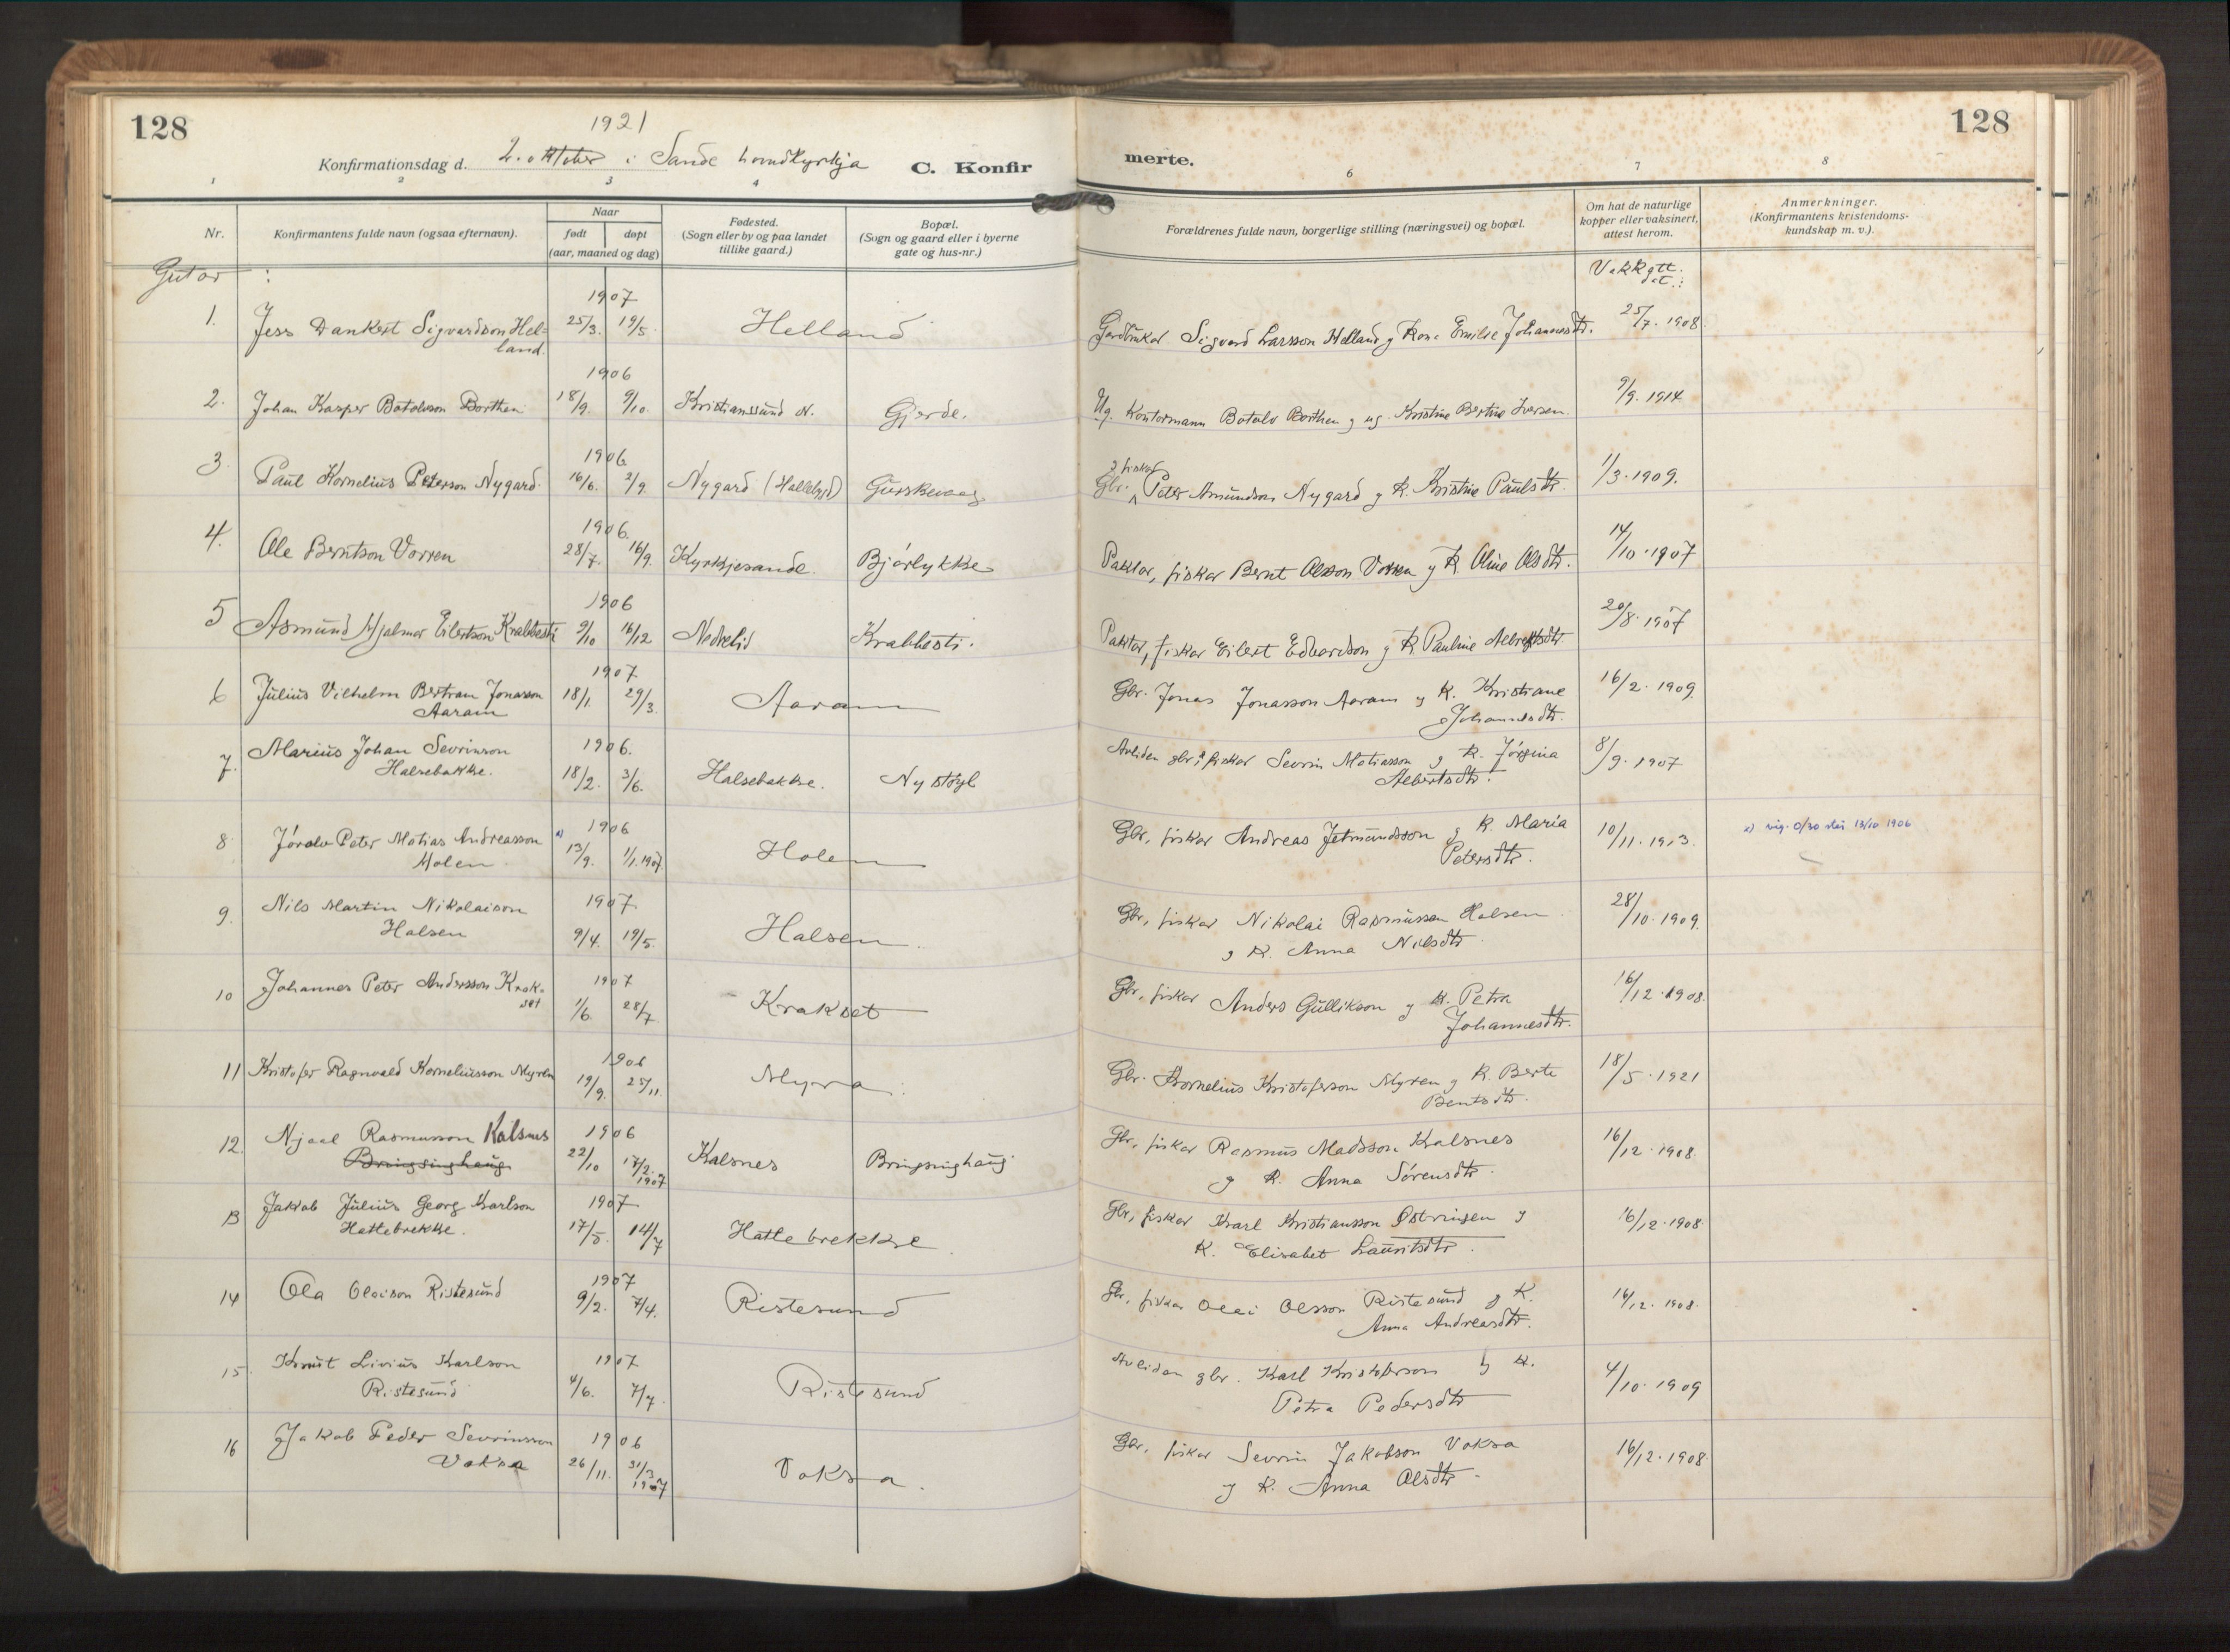 128
1921
Konfirmationsdag d. 2. oktober i Sande hovudkyrkja C. Konfir
1 2 3 4
Nr.
Konfirmantens fulde navn (ogsaa efternavn).
Naar
født døpt
(aar, maaned og dag)
Fødested.
(Sogn eller by og paa landet
tillike gaard.)
Bopæl.
(Sogn og gaard eller i byerne
gate og hus-nr.)
Gutar :
1. Jess Dankert Sigvardson Hel-
land. 1907 25/3. 19/5. Helland
2. Johan Kasper Botolvson Borthen 1906 18/9. 9/10. Kristianssund N. Gjerde.
3. Paul Kornelius Peterson Nygard 1906 16/6. 2/9. Nygard (Hallebygd) Gurskevaag
4. Ole Berntson Vorren 1906. 28/7. 16/9. Kyrkjesande. Bjørlykke
5 Asmund Hjalmar Eilertson Krabbesti 1906 9/10 16/12 Nedrelid Krabbesti.
6 Julius Vilhelm Bertram Jonasson
Aaram 1907 18/1. 29/3. Aaram
7. Marius Johan Sevrinson
Halsebakke. 1906. 18/2. 3/6. Halsebakke. Nystøyl
8. Peter Matias Andreasson
Holen 1906 x) 13/9. 1/1. 1907. Holen
9. Nils Martin Nikolaison
Halsen 1907. 9/4. 19/5. Halsen.
10 Johannes Peter Andersson Krak-
set 1907 1/6. 28/7. Krakset
11 Kristofer Ragnvald Korneliusson Myren 1906 19/9. 25/11. Myra.
12. Njaal Rasmusson Kalsnes
Bringsinghaug 1906 22/10 17/2. 1907 Kalsnes Bringsinghaug
13 Jakob Julius Georg Karlson
Hattebrekke. 1907 17/5. 14/7 Hattebrekke.
14 Ola Olaison Ristesund 1907 9/2. 7/4. Ristesund
15. Knut Livius Karlson
Ristesund 1907 4/6. 7/7. Ristesund
16 Jakob Peder Sevrinsson
Voksa 1906 26/11. 31/3. 1907 Voksa.
128
merte.
6 7 8
Forældrenes fulde navn, borgerlige stilling (næringsvei) og bopæl.
Om hat de naturlige
kopper eller vaksinert,
attest herom.
Anmerkninger.
(Konfirmantens kristendoms-
kundskap m. v.).
Gardbrukar Sigvard Larsson Helland g Kone Emilie Johannesdtr. 25/7. 1908.
Ug. Kontormann Botolv Borthen g ug. Kristine Bertine Iversen. 9/9. 1914
g fiskar
Gbr. Peter Asmundson Nygard g K. Kristine Paulsdtr. 1/3. 1909.
Paktar, fiskar Bernt Olsson Vorren g K. Oline Olsdtr. 14/10. 1907
Paktar, fiskar Eilert Edvardson g K. Pauline Albrektsdtr 20/8. 1907
Gbr. Jonas Jonasson Aaram g K. Kristiane
Johannesdtr. 16/2. 1909.
Avliden gbr, fiskar Sevrin Matiasson g K. Jørgina
Albertsdtr. 8/9. 1907
Gbr, fiskar Andreas Jetmundsson g K. Maria
Petersdtr. 10/11. 1913. x)
Gbr, fiskar Nikolai Rasmusson Halsen.
g K. Anna Nilsdtr. 28/10. 1909.
Gbr, fiskar Anders Gullikson g K. Petra
Johannesdtr. 16/12. 1908.
Gbr. Kornelius Kristoferson Myren g K. Berte
Bentsdtr. 18/5. 1921
Gbr, fiskar Rasmus Madsson Kalsnes
g K. Anna Sørensdtr. 16/12. 1908.
Gbr, fiskar Karl Kristiansson g
K. Elisabet Lauritsdtr. 16/12. 1908.
Gbr, fiskar Olai Olsson Ristesund g K.
Anna Andreasdtr. 16/12. 1908.
Avliden gbr. Karl Kristoferson g K.
Petra Pedersdtr 4/10. 1909
Gbr, fiskar Sevrin Jakobson Voksa
g K. Anna Olsdtr. 16/12. 1908.